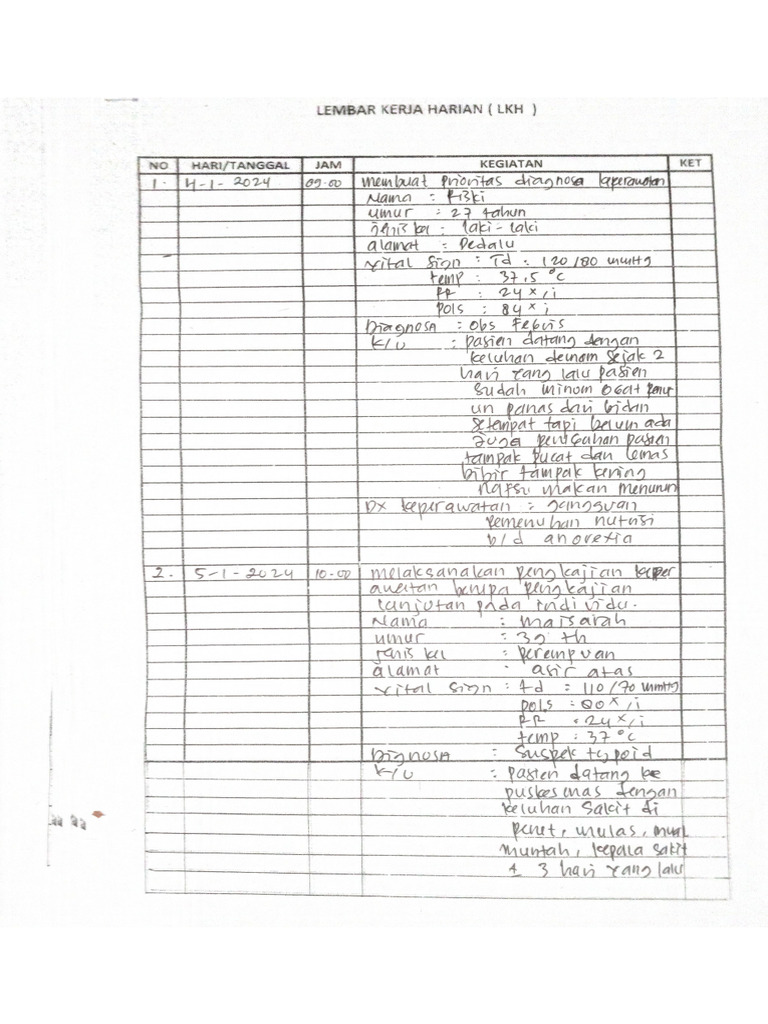 LEMBAR KERJA HARIAN ( LKH )
NO HARI/TANGGAL JAM KEGIATAN KET
1. 4-1-2024 09.00 membuat prioritas diagnosa keperawatan
Nama : Rizki
umur : 27 tahun
jenis kel : laki-laki
alamat : Pedalu
vital sign : Td : 120/80 mmHg
temp : 37,5 °c
RR : 24 x/i
pols : 84 x i
Diagnosa : obs Febris
K/U : pasien datang dengan
keluhan demam sejak 2
hari yang lalu pasien
sudah minum obat penur
un panas dari bidan
setempat tapi belum ada
juga perubahan pasien
tampak pucat dan lemas
bibir tampak kering
nafsu makan menurun
Dx keperawatan : gangguan
pemenuhan nutrisi
b/d anorexia
2. 5-1-2024 10.00 melaksanakan pengkajian keper
awatan berupa pengkajian
lanjutan pada individu.
Nama : maisarah
umur : 39 th
jenis kel : perempuan
alamat : asir atas
vital sign : td : 110/70 mmHg
pols : 80 x/i
RR : 24 x/i
temp : 37 °c
Dignosa : Suspek typoid
K/U : pasien datang ke
puskesmas dengan
keluhan sakit di
perut, mulas, mual
muntah, kepala sakit
± 3 hari yang lalu